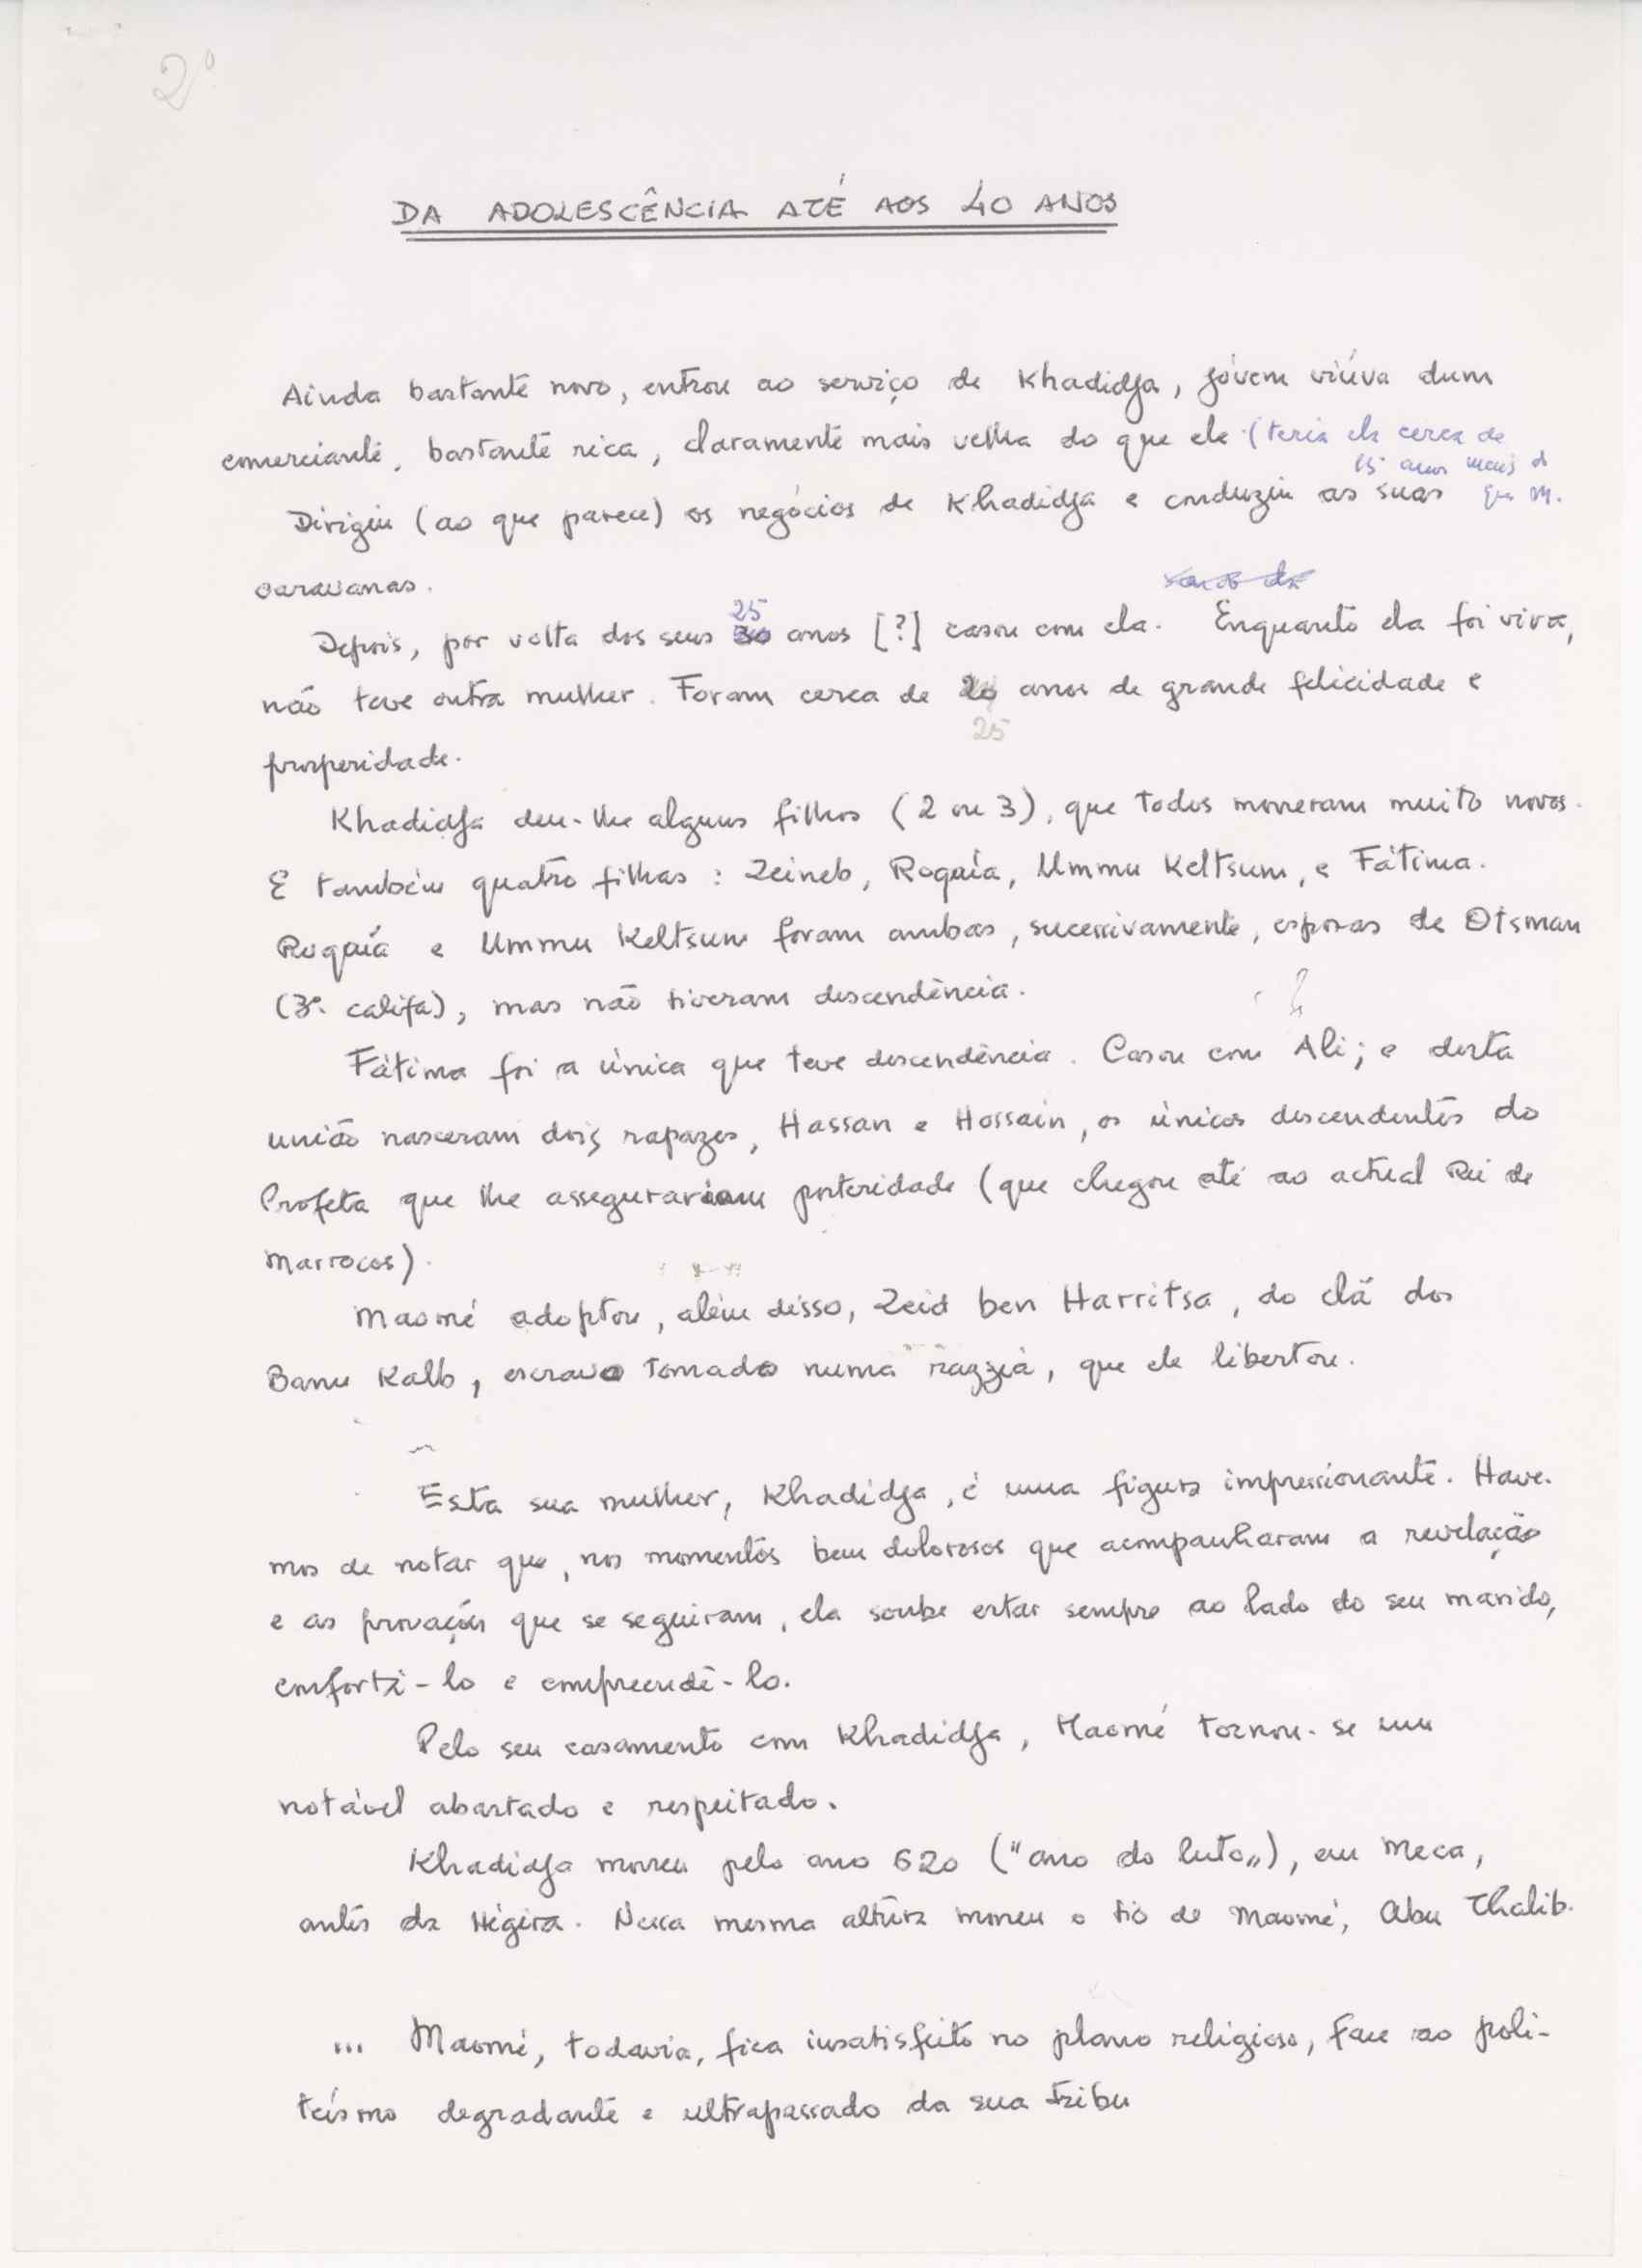 2º
DA ADOLESCÊNCIA ATÉ AOS 40 ANOS
Ainda bastante novo, entrou ao serviço de Khadidja, jóvem viúva dum
comerciante, bastante rica, claramente mais velha do que ele (teria ela cerca de
15 anos mais do
que M.
Dirigiu (ao que parece) os negócios de Khadidja e conduziu as suas
caravanas.
25
Depois, por volta dos seus 30 anos [?] casou com ela. Enquanto ela foi viva,
não teve outra mulher. Foram cerca de 20 anos de grande felicidade e
25
prosperidade.
Khadidja deu-lhe alguns filhos (2 ou 3), que todos morreram muito novos.
E também quatro filhas: Zeineb, Roqaía, Ummu Keltsum, e Fátima.
Roqaía e Ummu Keltsum foram ambas, sucessivamente, esposas de Otsman
(3º califa), mas não tiveram descendência.
Fátima foi a única que teve descendência. Casou com Ali; e desta
união nasceram dois rapazes, Hassan e Hossain, os únicos descendentes do
Profeta que lhe assegurariam posteridade (que chegou até ao actual Rei de
Marrocos).
Maomé adoptou, além disso, Zeid ben Harritsa, do clã dos
Banu Kalb, escravo tomado numa razzia, que ele libertou.
Esta sua mulher, Khadidja, é uma figura impressionante. Have-
mos de notar que, nos momentos bem dolorosos que acompanharam a revelação
e as provações que se seguiram, ela soube estar sempre ao lado do seu marido,
confortá-lo e compreendê-lo.
Pelo seu casamento com Khadidja, Maomé tornou-se um
notável abastado e respeitado.
Khadidja morreu pelo ano 620 ("ano do luto„), em Meca,
antes da Hégira. Nessa mesma altura morreu o tio de Maomé, Abu Thalib.
... Maomé, todavia, fica insatisfeito no plano religioso, face ao poli-
teísmo degradante e ultrapassado da sua tribu